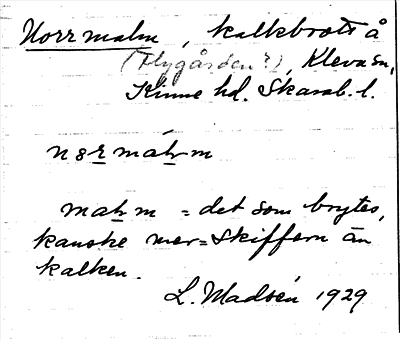 Norrmalm, kalkbrott å
(Flygården?), Kleva sn,
Kinne hd. Skarab. l.
mahm = det som brytes,
kanske mer = skiffern än
kalken.
L. Madsén 1929